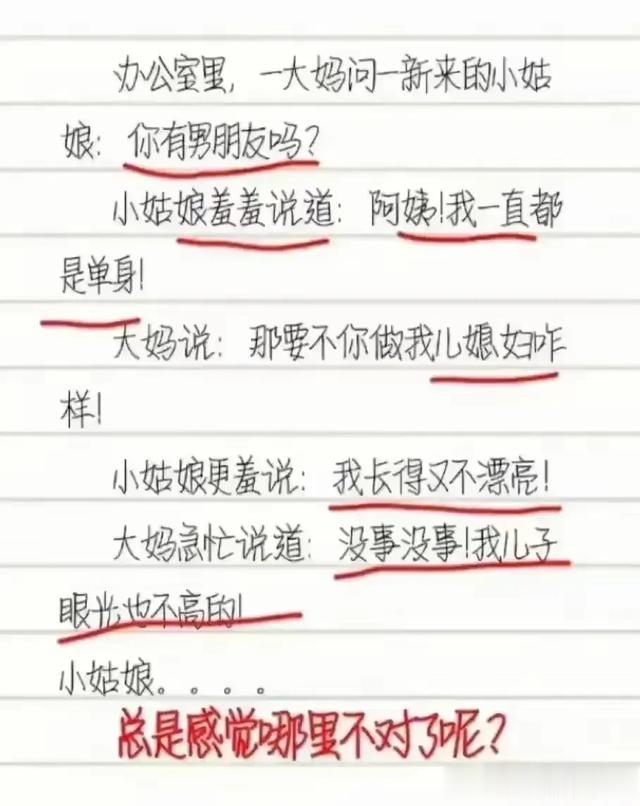 办公室里，一大妈问一新来的小姑
娘：你有男朋友吗？
小姑娘羞羞说道：阿姨！我一直都
是单身！
大妈说：那要不你做我儿媳妇咋
样！
小姑娘更羞说：我长得又不漂亮！
大妈急忙说道：没事没事！我儿子
眼光也不高的！
小姑娘。。。。
总是感觉哪里不对了呢？